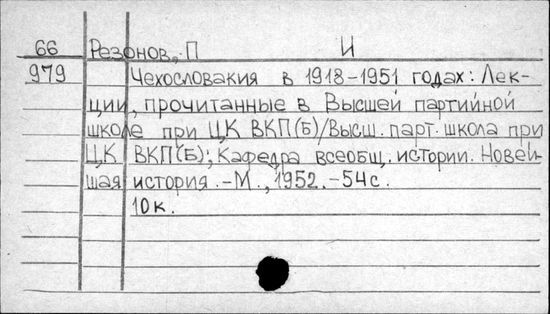 66 Резонов, П И
979 Чехословакия в 1918-1951 годах: Лек-
ции, прочитанные в Высшей партийной
школе при ЦК ВКП(Б)/Высш. парт. школа при
ЦК ВКП(Б); Кафедра всеобщ. истории. Новей-
шая история. -М., 1952. -54с.
10к.